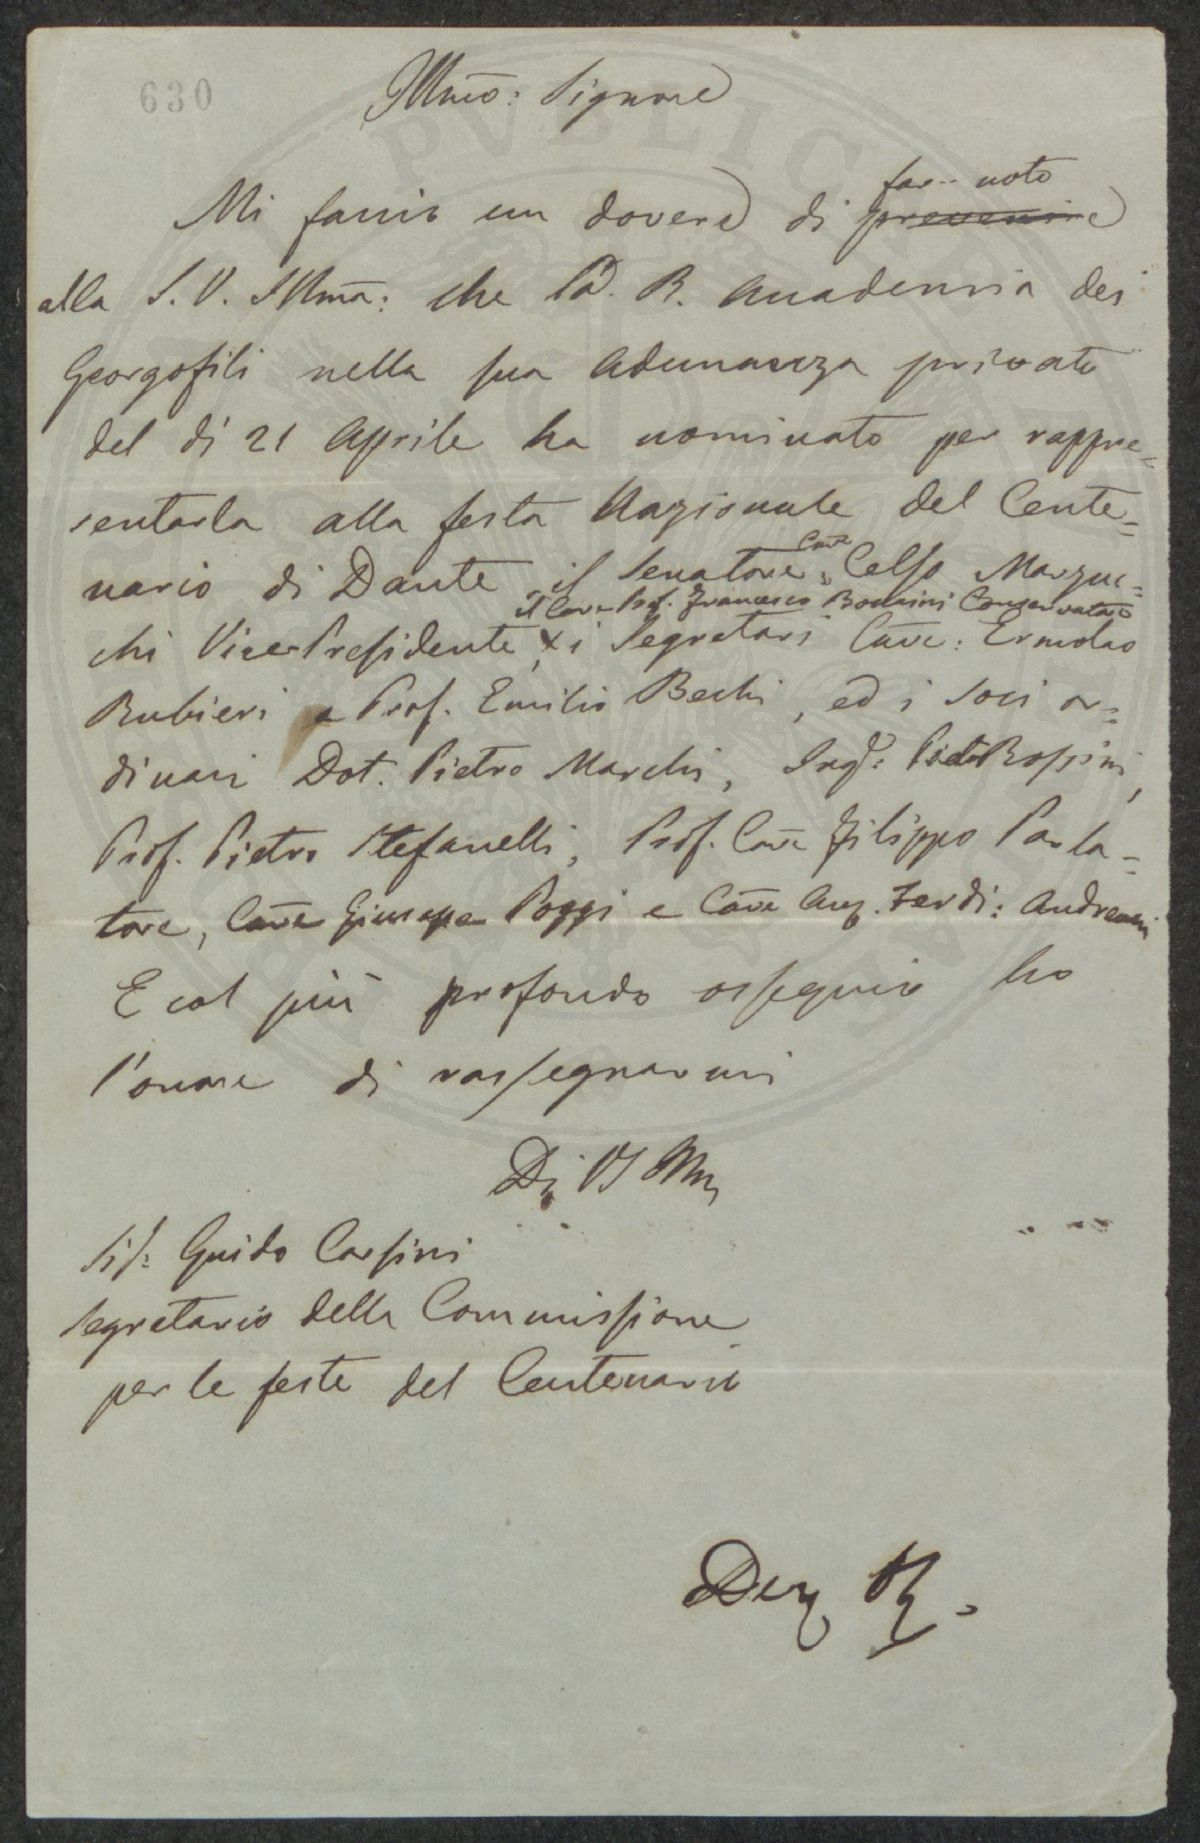 630
Illmo: Signore
far noto
Mi faccio un dovere di prevenire
alla S. V. Illma: che la R. Accademia dei
Georgofili nella sua adunanza privata
del dì 21 Aprile ha nominato per rappre=
sentarla alla festa Nazionale del Cente=
Cave
nario di Dante il Senatore Celso Marzuc=
il Cave Prof. Francesco Bonaini Conservatore
chi Vice Presidente, i Segretari Cave: Ermolao
Rubieri e Prof. Emilio Bechi, ed i Soci or=
dinari Dot. Pietro Marchi, Ingr: Rossini,
Prof. Pietro Stefanelli, Prof. Cave Filippo Parla=
tore, Cave Giuseppe Poggi e Cave Ang. Ferdi: Andreucci
E col più profondo ossequio ho
l'onore di rassegnarmi
Di VS Illma
Sigr: Guido Corsini
Segretario della Commissione
per le feste del Centenario